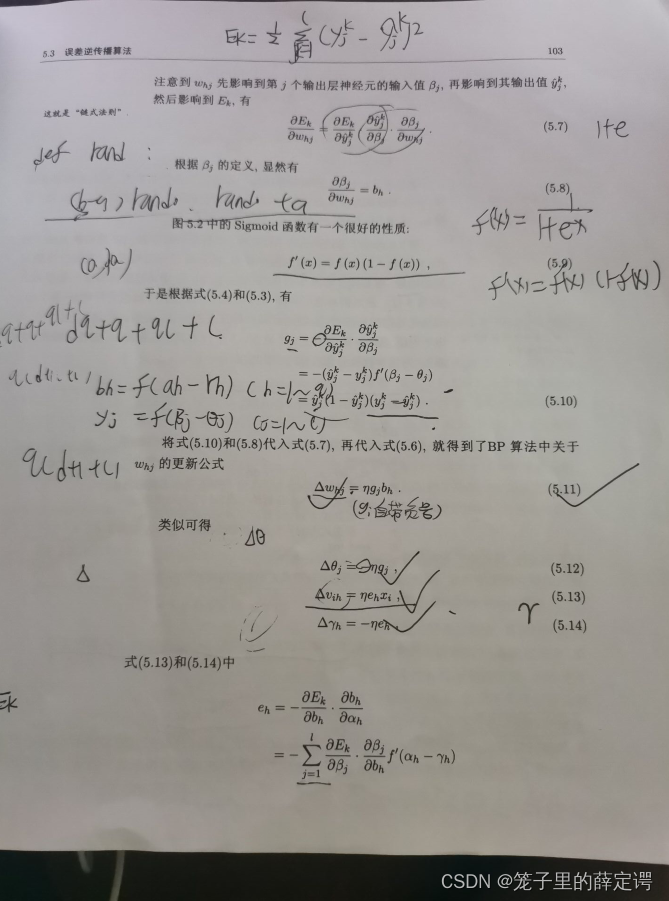 Ek = 1/2 Σ (yjᵏ - ŷjᵏ)2
5.3 误差逆传播算法 103
注意到 whj 先影响到第 j 个输出层神经元的输入值 βj, 再影响到其输出值 ŷjᵏ,
然后影响到 Ek, 有
这就是“链式法则”.
∂Ek/∂whj = ∂Ek/∂ŷjᵏ · ∂ŷjᵏ/∂βj · ∂βj/∂whj . (5.7)
1+e
def rand :
根据 βj 的定义, 显然有
∂βj/∂whj = bh . (5.8)
(b-a) rando. rando +a
f(x) = 1/1+eˣ
图 5.2 中的 Sigmoid 函数有一个很好的性质:
f′(x) = f(x)(1 − f(x)) , (5.9)
f'(x) = f(x) (1-f(x))
于是根据式(5.4)和(5.3), 有
gj = −∂Ek/∂ŷjᵏ · ∂ŷjᵏ/∂βj
dq+q+ql+l
= −(ŷjᵏ − yjᵏ)f′(βj − θj)
bh = f(ah - rh) (h=1~q)
= ŷjᵏ(1 − ŷjᵏ)(yjᵏ − ŷjᵏ) . (5.10)
yj = f(βj - θj) (j=1~l)
将式(5.10)和(5.8)代入式(5.7), 再代入式(5.6), 就得到了BP 算法中关于
q(d+1+l)
whj 的更新公式
Δwhj = ηgjbh . (5.11)
(gj自带负号)
类似可得
Δθ
Δθj = −ηgj , (5.12)
Δ
Δvih = ηehxi , (5.13)
Δγh = −ηeh , (5.14)
γ
式(5.13)和(5.14)中
Ek
eh = −∂Ek/∂bh · ∂bh/∂αh
= −Σⱼ₌₁ˡ ∂Ek/∂βj · ∂βj/∂bh f′(αh − γh)
CSDN @笼子里的薛定谔